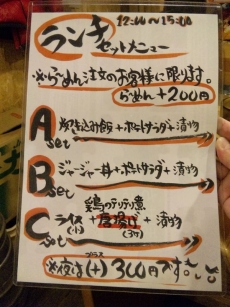 12:00〜15:00
ランチセットメニュー
※らーめん注文のお客様に限ります。
らーめん+200円
A set 炊き込み飯+ポテトサラダ+漬物
B set ジャージャー丼+ポテトサラダ+漬物
鶏のテリテリ煮
C set ライス(小)+唐揚げ(3ケ)+漬物
※夜は プラス(+)300円です。